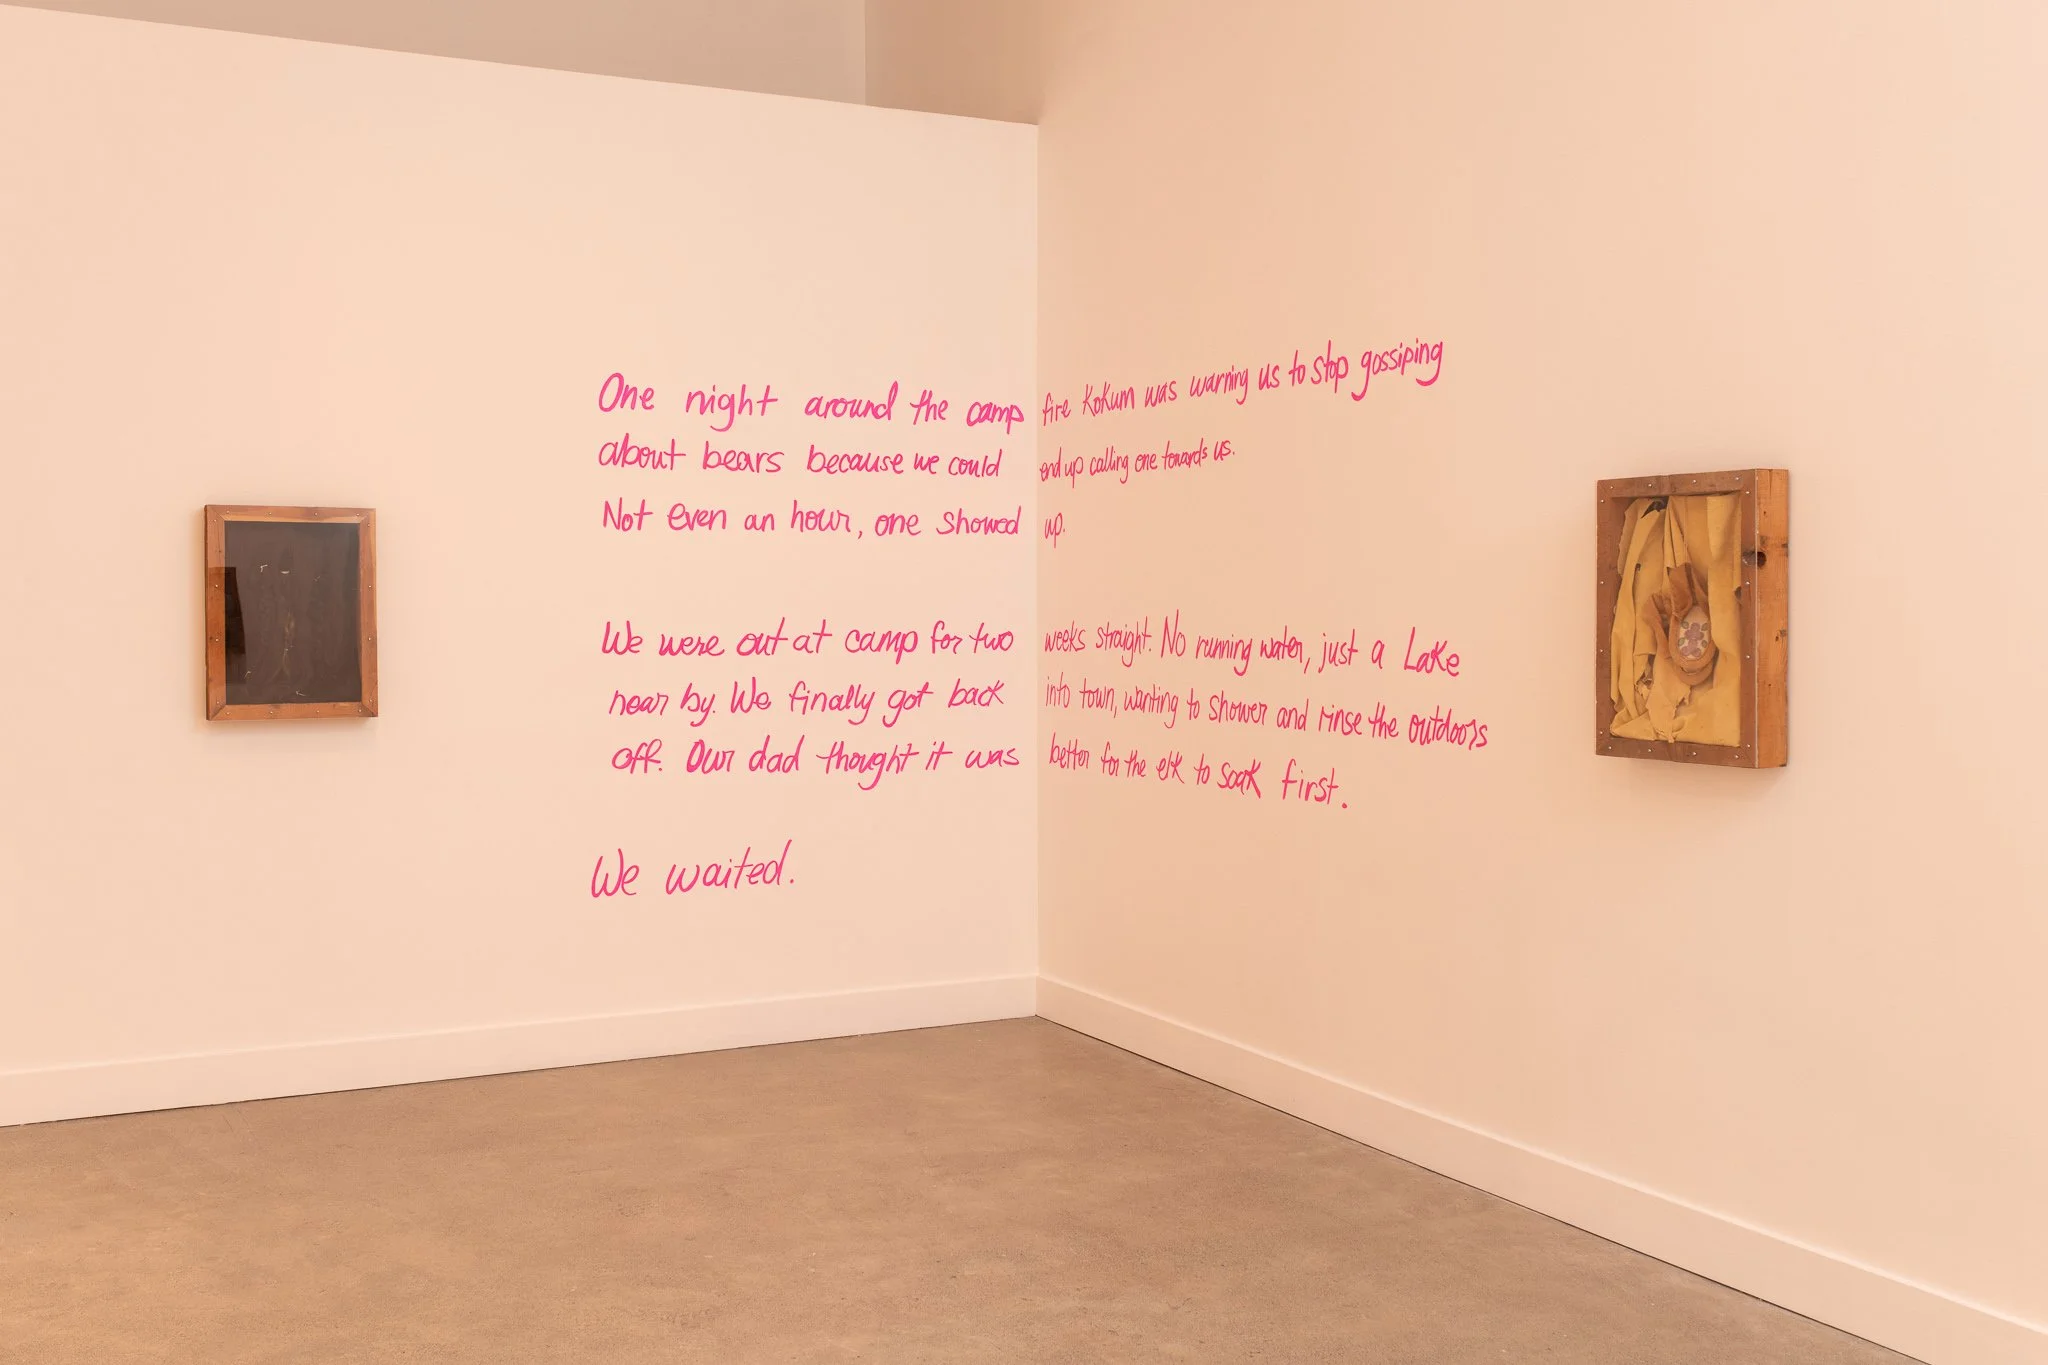 One night around the camp fire Kokum was warning us to stop gossiping
about bears because we could end up calling one towards us.
Not even an hour, one showed up.
We were out at camp for two weeks straight. No running water, just a Lake
near by. We finally got back into town, wanting to shower and rinse the outdoors
off. Our dad thought it was better for the elk to soak first.
We waited.